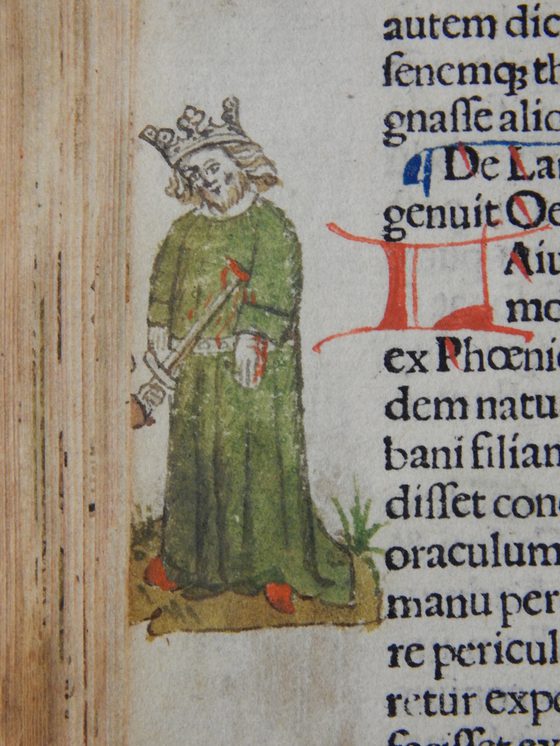 autem dic
ſenemqꝫ th
gnaſſe alic
¶ De Lai
genuit Oe
L Aiu
mo
ex Phœni
dem natu
bani filian
diſſet con
oraculum
manu per
re pericul
retur expo